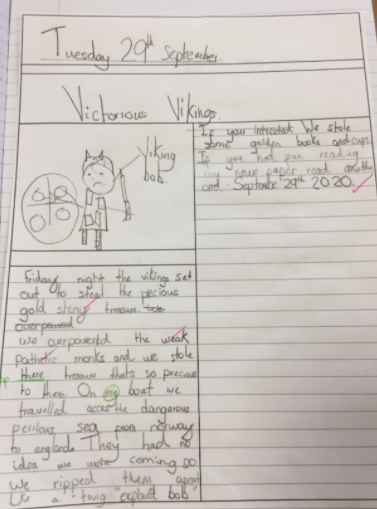 Tuesday 29th September.
Victorious Vikings.
Viking
bob.
Friday night the vikings set
out to steal the pecious
gold shiny treasure.
overpowerd
we overpowered the weak
pathetic monks and we stole
there treasure thats so precious
to them. On my boat we
travelled accross the dangerous
perilous sea from norway
to england. They had no
idea we were coming so
we ripped them apart
like a twig "explaind bob."
If you intrested We stole
some golden books and cups
If you had fun reading
my news paper read another
one. September 29th 2020.